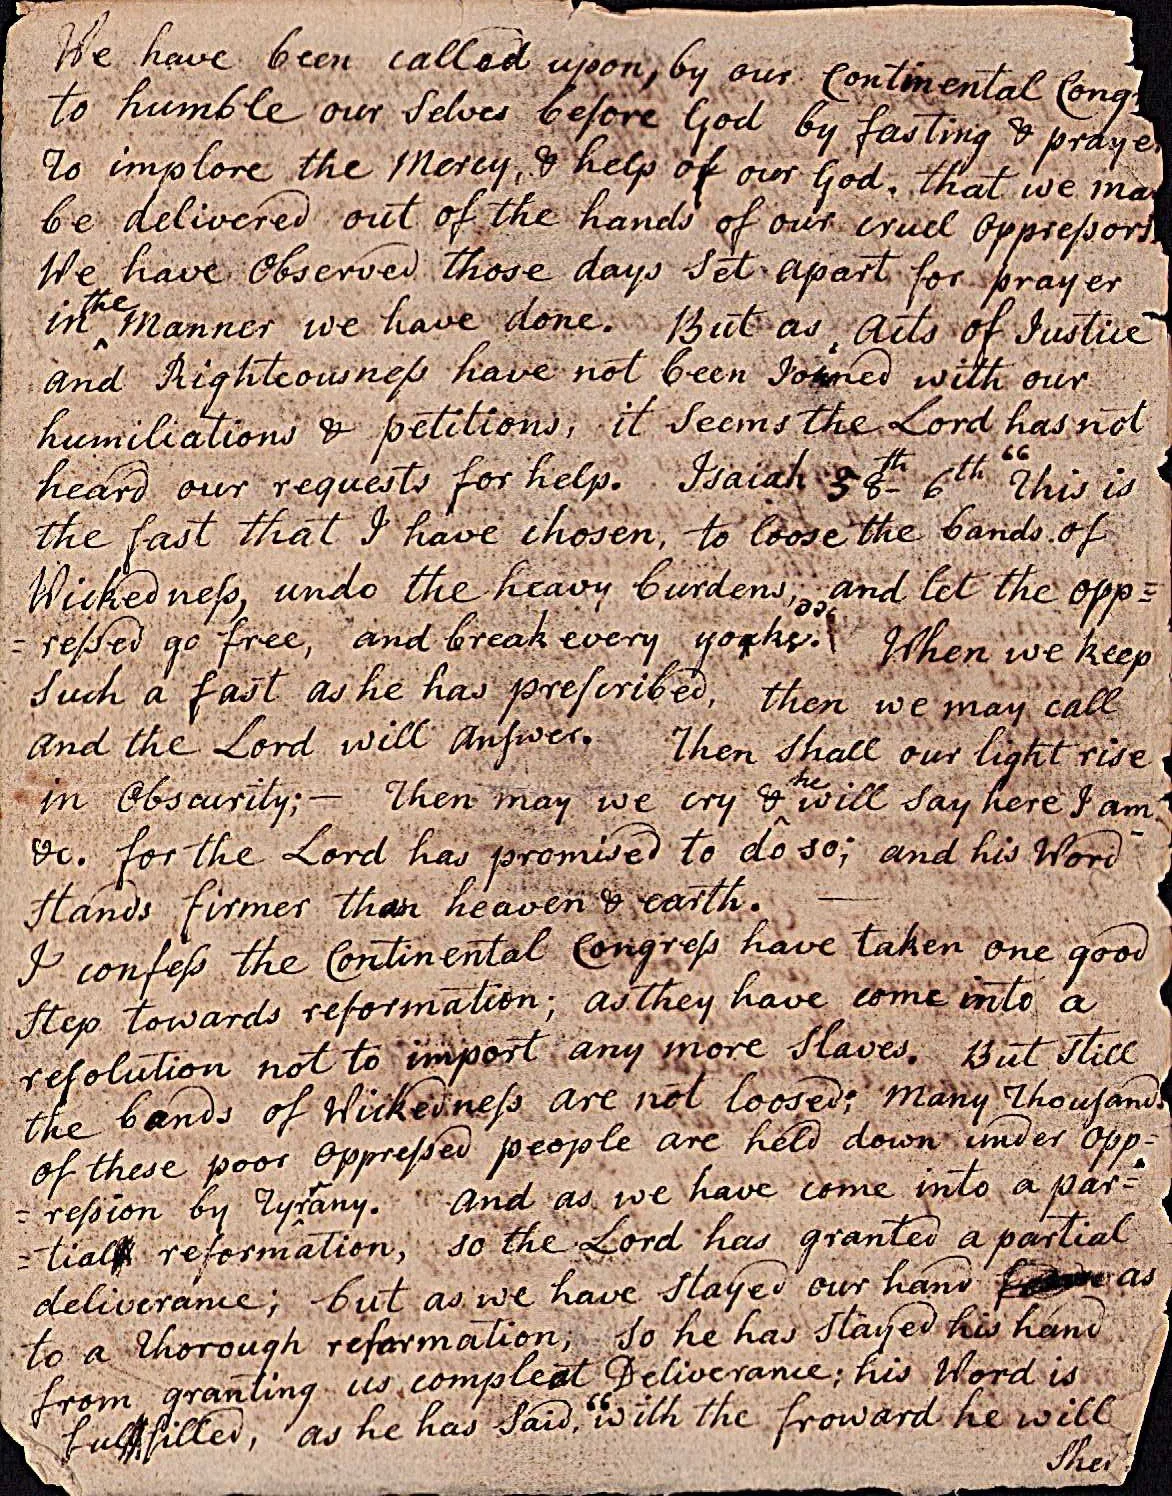 We have been called upon, by our Continental Cong
to humble our Selves before God by fasting & praye
To implore the Mercy, & help of our God. that we ma
be delivered out of the hands of our cruel oppreſsors.
We have Observed those days Set apart for prayer
in the Manner we have done. But as, Acts of Justice
and Righteousneſs have not been Joined with our
humiliations & petitions, it Seems the Lord has not
heard our requests for help. Isaiah 58th 6th "This is
the fast that I have chosen, to loose the bands of
Wickedneſs, undo the heavy burdens, and let the opp=
=reſsed go free, and break every yoke." When we keep
Such a fast as he has preſcribed, then we may call
and the Lord will Anſwer. Then Shall our light rise
in Obscurity;— Then may we cry & he will Say here I am
&c. for the Lord has promised to do so; and his Word
Stands firmer than heaven & earth. —
I confeſs the Continental Congreſs have taken one good
Step towards reformation; as they have come into a
reſolution not to import any more Slaves. But Still
the bands of Wickedneſs are not loosed; Many Thouſands
of these poor Oppreſsed people are held down under Opp=
=reſsion by Tyrany. And as we have come into a par=
=tial reformation, so the Lord has granted a partial
deliverance; but as we have Stayed our hand as
to a Thorough reformation, So he has Stayed his hand
from granting us compleat Deliverance; his Word is
fulfilled, as he has Said, "with the froward he will
Shew